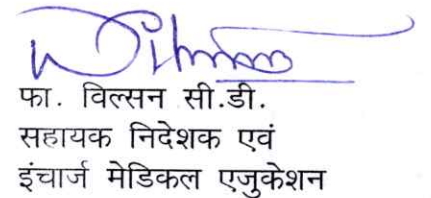 फा. विल्सन सी.डी.
सहायक निदेशक एवं
इंचार्ज मेडिकल एजुकेशन